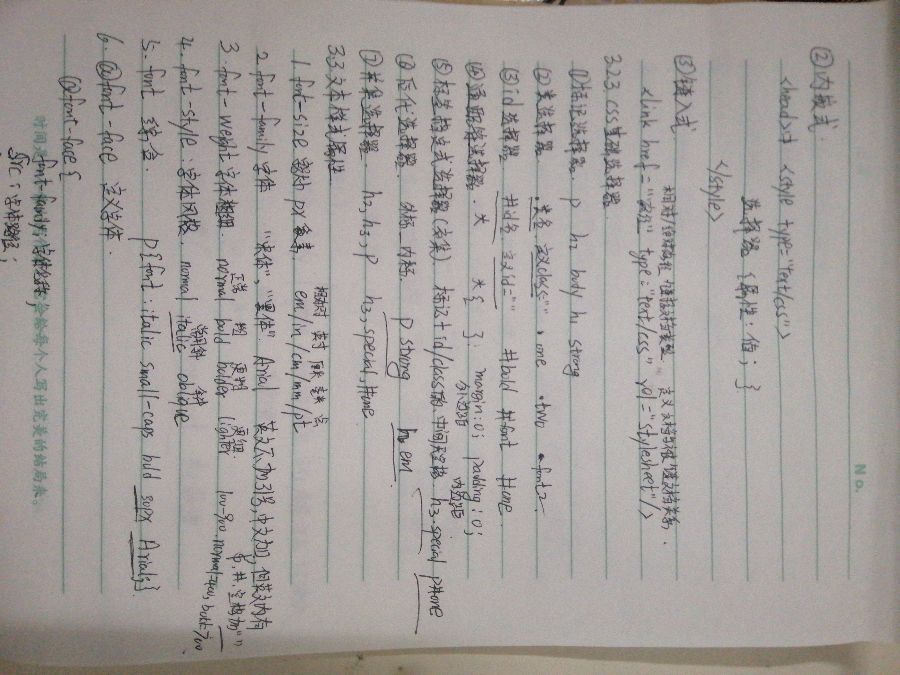 No.
②内嵌式.
<head>中 <style type="text/css">
选择器 {属性:值; }
</style>
③链入式
相对/绝对路径
<link href="路径" type="text/css" rel="stylesheet"/>
3.2.3 css基础选择器
①标记选择器. p h2 body h1 strong
②类选择器. .类名 定义class=" " .one .two .font2
③id选择器 #id名 定义id=" " #bold #font #one.
④通配符选择器. * *{ } margin:0; padding:0;
外边距 内边距
⑤标签指定式选择器(交集) 标记+id/class 中间无空格 h3.special p#one
⑥后代选择器. 外标 内标. p strong h2 em
⑦并集选择器 h2,h3,p h3,.special,#one
3.3 文本样式属性
相对 英寸 厘米 毫米 点
1. font-size 字号 px像素 em/in/cm/mm/pt
2. font-family 字体 "宋体","黑体". Arial 英文不加引号,中文加,但英文内有
$,#,空格加" "
正常 粗 更粗 更细
3. font-weight 字体粗细. normal bold bolder lighter 100-900. normal=400, bold=700
斜
4. font-style: 字体风格. normal italic oblique
5. font 综合. p{font:italic small-caps bold 50px Arial;}
6. @font-face 定义字体.
@font-face {
font-family:字体名称;
src:字体路径;
人写出完美的结局来。